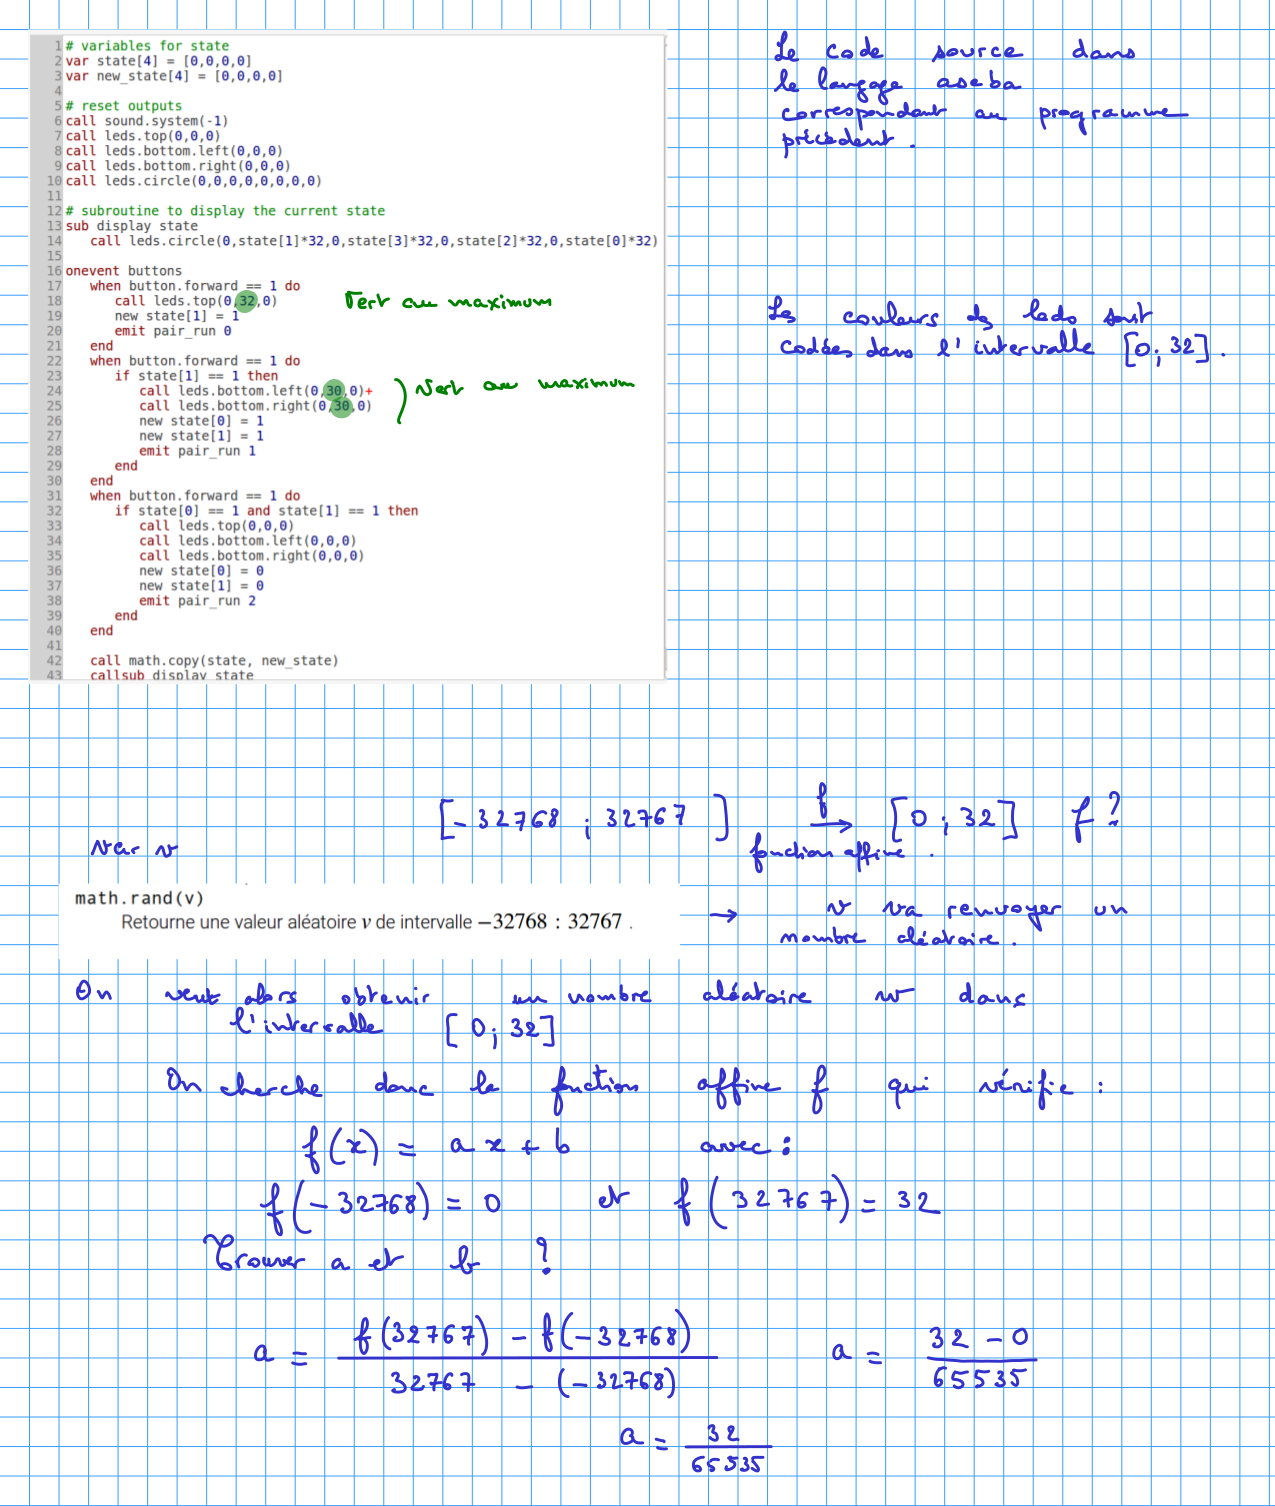 1 # variables for state
2 var state[4] = [0,0,0,0]
3 var new_state[4] = [0,0,0,0]
4
5 # reset outputs
6 call sound.system(-1)
7 call leds.top(0,0,0)
8 call leds.bottom.left(0,0,0)
9 call leds.bottom.right(0,0,0)
10 call leds.circle(0,0,0,0,0,0,0,0)
11
12 # subroutine to display the current state
13 sub display state
14 call leds.circle(0,state[1]*32,0,state[3]*32,0,state[2]*32,0,state[0]*32)
15
16 onevent buttons
17 when button.forward == 1 do
18 call leds.top(0,32,0) Vert au maximum
19 new state[1] = 1
20 emit pair_run 0
21 end
22 when button.forward == 1 do
23 if state[1] == 1 then
24 call leds.bottom.left(0,30,0)+ Vert au maximum
25 call leds.bottom.right(0,30,0)
26 new state[0] = 1
27 new state[1] = 1
28 emit pair_run 1
29 end
30 end
31 when button.forward == 1 do
32 if state[0] == 1 and state[1] == 1 then
33 call leds.top(0,0,0)
34 call leds.bottom.left(0,0,0)
35 call leds.bottom.right(0,0,0)
36 new state[0] = 0
37 new state[1] = 0
38 emit pair_run 2
39 end
40 end
41
42 call math.copy(state, new_state)
43 callsub display state
Le code source dans
le langage aseba
correspondant au programme
précédent.
Les couleurs des leds sont
codées dans l'intervalle [0 ; 32].
[-32768 ; 32767] f → [0 ; 32] f ?
fonction affine.
var v
math.rand(v)
Retourne une valeur aléatoire v de intervalle −32768 : 32767 .
→ v va renvoyer un
nombre aléatoire.
On veut alors obtenir un nombre aléatoire w dans
l'intervalle [0 ; 32]
On cherche donc la fonction affine f qui vérifie :
f(x) = a x + b avec :
f(-32768) = 0 et f(32767) = 32
Trouver a et b ?
a = f(32767) - f(-32768) / 32767 - (-32768) a = 32 - 0 / 65535
a = 32 / 65535